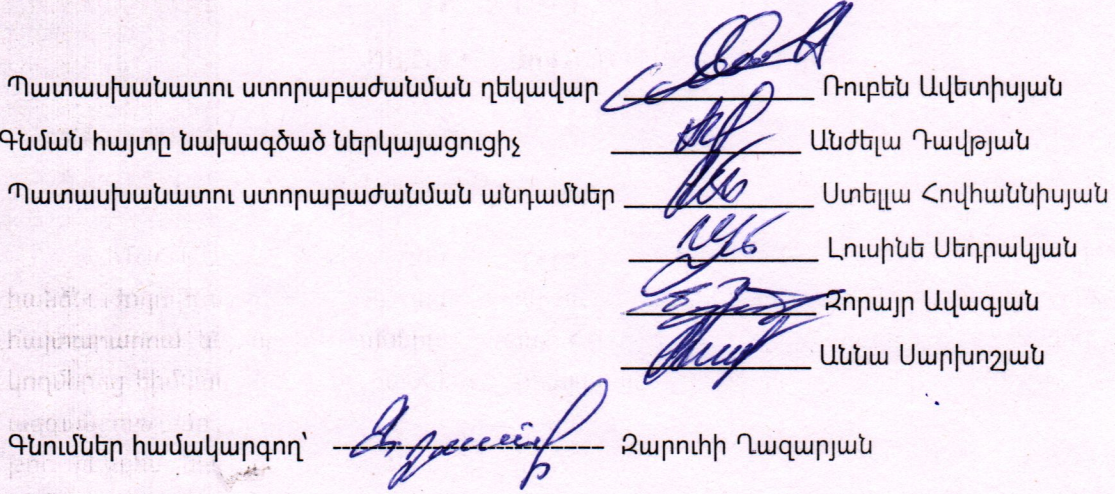 Պատասխանատու ստորաբաժանման ղեկավար ____________ Ռուբեն Ավետիսյան
Գնման հայտը նախագծած ներկայացուցիչ ____________ Անժելա Դավթյան
Պատասխանատու ստորաբաժանման անդամներ ____________ Ստելլա Հովհաննիսյան
____________ Լուսինե Սեդրակյան
____________ Զորայր Ավագյան
____________ Աննա Սարխոշյան
Գնումներ համակարգող՝ ------------------ Զարուհի Ղազարյան